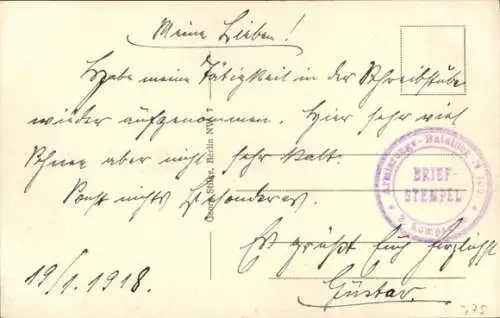 Meine Lieben!
Habe meine Tätigkeit in der Schreibstube
wieder aufgenommen. Hier sehr viel
Schnee aber nicht sehr kalt.
Sonst nichts Besonderes.
Es grüßt Euch herzlichst
Gustav.
19/1. 1918.
Georg Stilke, Berlin NW 7
Armierungs-Bataillon
BRIEF-
STEMPEL
* 2. Komp. *